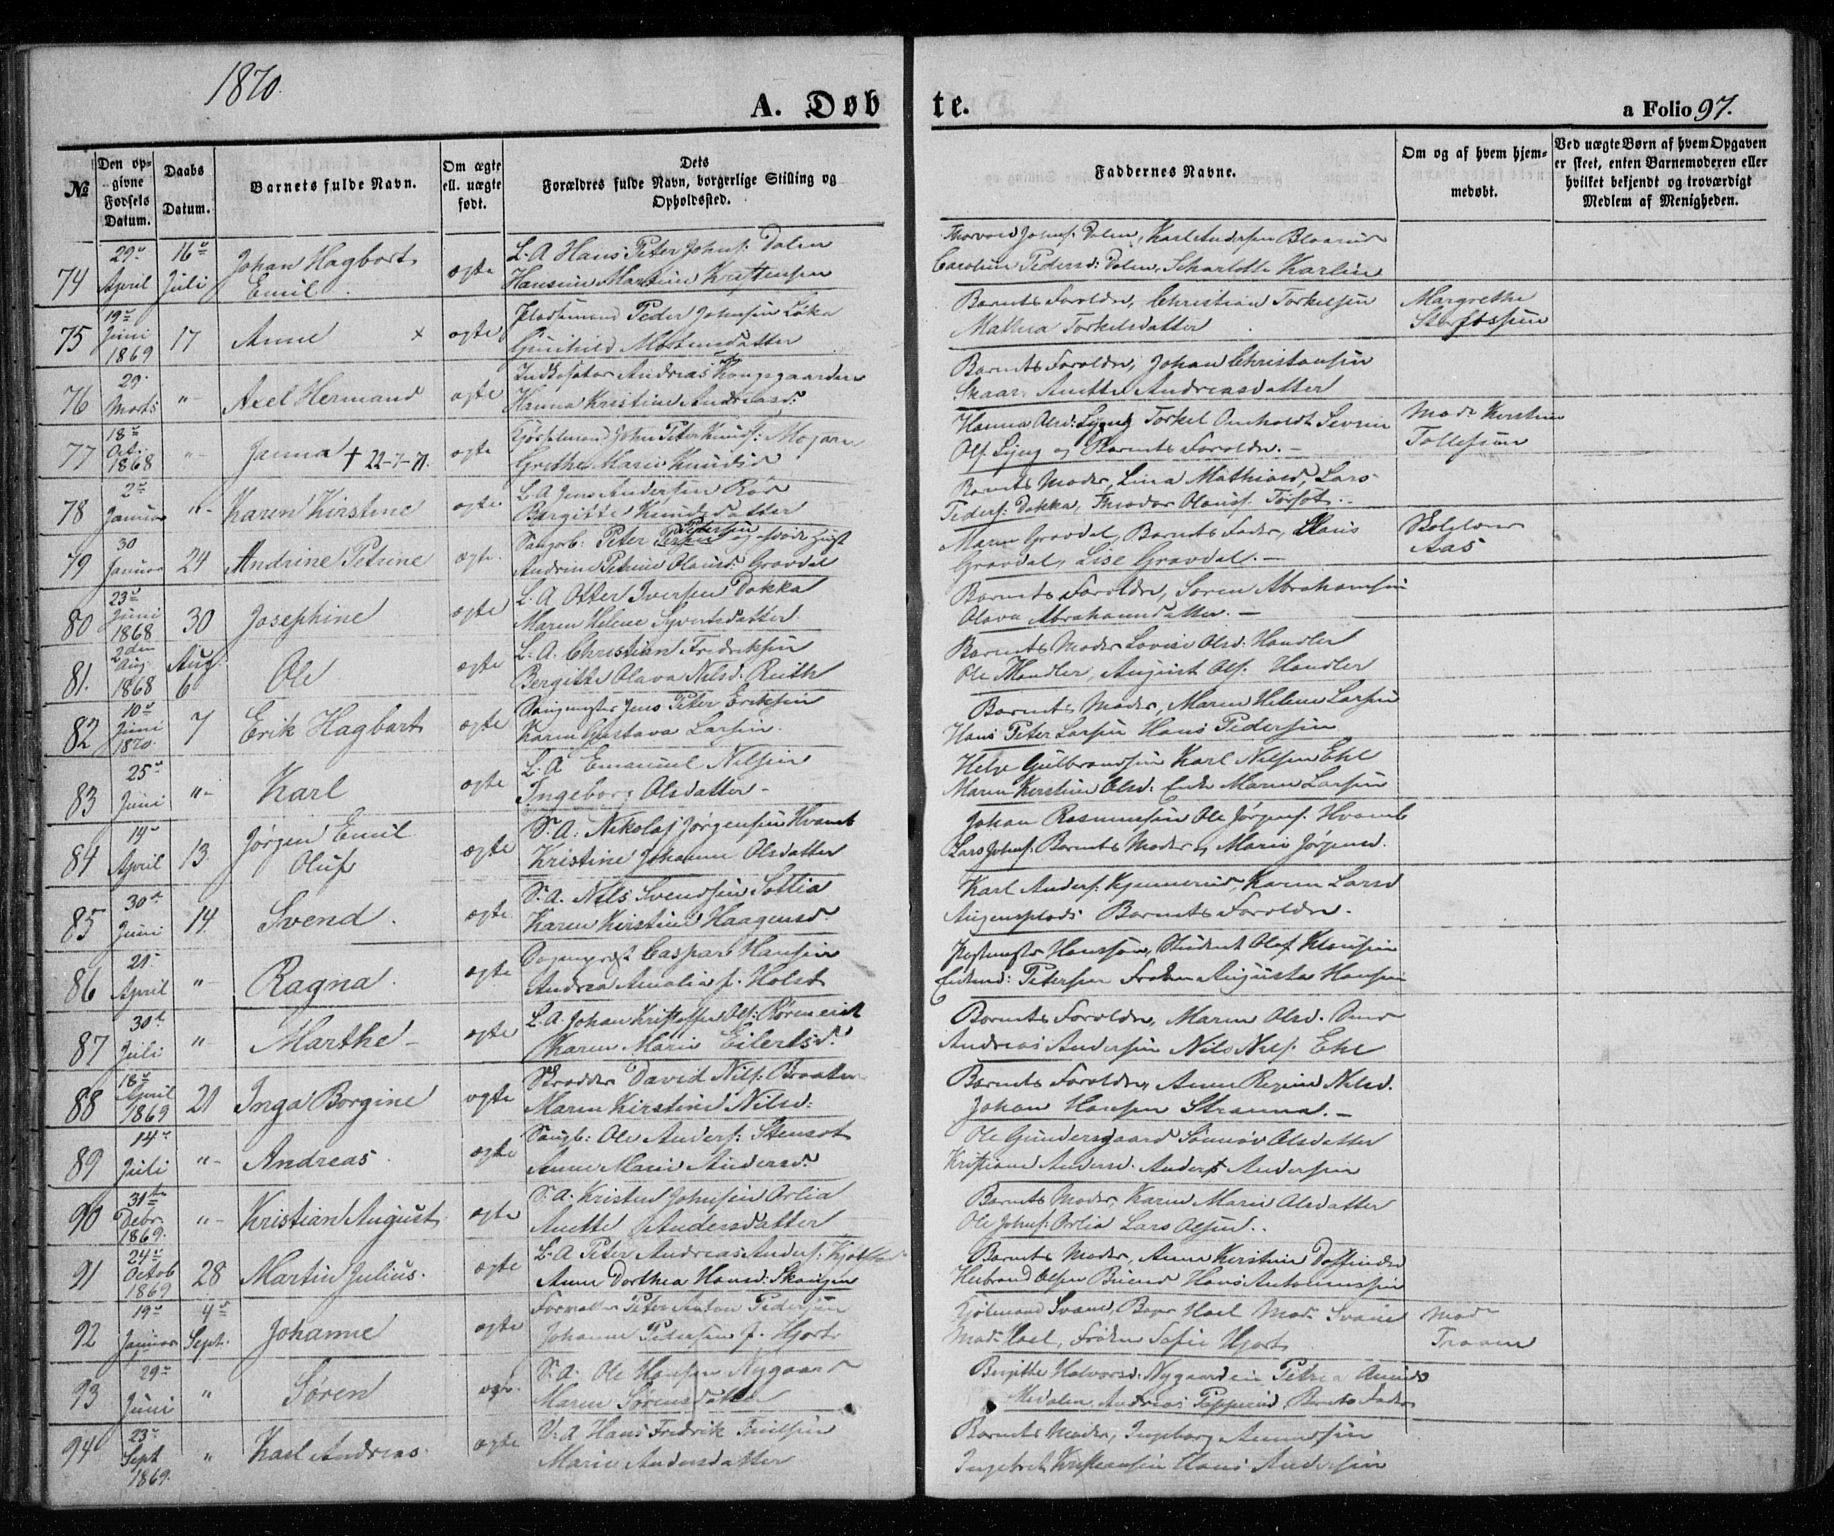 1870.
A. Døbte.
a Folio 97.
№
Den opgivne Fødsels Datum.
Daabs Datum.
Barnets fulde Navn.
Om ægte ell. uægte født.
Dets Forældres fulde Navn, borgerlige Stilling og Opholdssted.
Faddernes Navne.
Om og af hvem hjemmedøbt.
Ved uægte Børn af hvem Opgaven er skeet, enten Barnemoderen eller hvilket bekjendt og troværdigt Medlem af Menigheden.
74 29 April 16 Juli Johan Hagbart Emil ægte L. A. Hans Peter Johns: Dalen
Hansine Martine Kristensen
Thorvald Johns: Dalen, Karl Andersen Blaarud
Caroline Peders: Dalen, Scharlotte Karlsen
75 19 Juni 1869 17 Anne x ægte Pladsmand Peder Johnsen Løka
Gunhild Mortensdatter
Barnets Forældre, Christian Torkelsen
Mathea Torkelsdatter
Margrethe
76 29 Marts "- Axel Hermand ægte Andreas Kongsgaarden
Hanna Kristine Andreasd:
Barnets Forældre, Johan Christensen
Skaar Anette Andreasdatter
77 18 Oct. 1868 "- Janna † 22-7-71. ægte John Peter Knuds: Mogan
Grethe Marie Knudsd
Hanna Olsd: Torkel Omholdt Severin
og Barnets Forældre. -
Mod: Kirstine Tollefsen
78 2 Januar "- Karen Kirstine ægte L. A. Jens Andersen Röd
Bergitte Knudsdatter
Barnets Moder, Lina Mathisd, Lars
Peders: Dokka, Theodor Olauss:
79 30 Januar 24 Andrine Petrine ægte. Peter Petersen
Andrine Petrine Olausd. Gravdal
Maren Gravdal, Barnets Fader, Klaus
Gravdal, Lise Gravdal. -
Aas
80 23 Juni 1868 30 Josephine ægte L. A. Otter Iversen Dokka
Maren Helene Syvertsdatter
Barnets Forældre, Søren Abrahamsen
Olava Abrahamsdatter. -
81. 2den Aug. 1868 Aug. 6 Ole ægte L. A. Christian Fredriksen
Bergitte Olava Nilsd. Ruth
Barnets Moder Lovise Olsd: Handler
Ole Handler, August Ols: Handler
82 10 Juni 1870. 7 Erik Hagbart ægte Jens Peter Eriksen
Karen Gustava Larsen.
Barnets Moder, Maren Helene Larsen
Hans Peter Larsen Hans Pedersen
83 25 Juni "- Karl ægte L. A. Emanuel Nilsen
Ingeborg Olsdatter -
Helge Gulbrandsen Karl Nilsen Eke
Maren Kirstine Olsd: Enke Maren Larsen
84 14 April 13. Jørgen Emil Oluf ægte S. A. Nikolaj Jørgensen Hvamb
Kristine Johanne Olsdatter
Johan Rasmussen Ole Jørgens: Hvamb
Lars Johns: Barnets Moder, Marie Jørgensd.
85 30 Juni 14. Svend. ægte S. A. Nils Svendsen Sollia
Karen Kirstine Haagensd.
Karl Anders: Karen Larsd
Barnets Forældre.
86 20 April "- Ragna. ægte Caspar Hansen
Andrea Amalia f. Holst
Postmester Hanssen, Student Olaf Klausen
Petersen Frøken Augusta Hansen
87 30 Juli " Marthe - ægte L. A. Johan Kristoffer Ols:
Karen Marie Eilertsd.
Barnets Forældre, Maren Olsd.
Andreas Andersen Nils Nils: Eke
88 18 April 1869 21 Inga Borgine ægte Skrædder David Nils: Braaten
Maren Kirstine Nilsd:
Barnets Forældre, Anne Regine Nilsd.
Johan Hansen Stranna. -
89 14 Juli "- Andreas. ægte Ole Anders: Stensrt
Anne Marie Andersd.
Ole Gundersgaard Olsdatter
Kristiane Andersd. Anders Andersen
90 31te Debr. 1869. "- Kristian August ægte S. A. Kristen Johnsen Orlia
Anette Andersdatter
Barnets Moder, Karen Marie Olsdatter
Ole Johns: Orlia Lars Olsen.
91 24 Octob 1869 28 Martin Julius. ægte L. A. Peter Andreas Anders:
Anne Dorthea Hansd: Skougen
Barnets Moder, Anne Kirstine
Herbrand Olsen Hans Antonussen
92 19 Januar 4 Sept. Johanne ægte Forvalter Peter Anton Pedersen
Johanne Pedersen f. Hjort
Svane, Hael Mad. Svane
Mad: Hael, Frøken Sofie Hjort
Mod:
93 29 Juni " Søren S. A. Ole Hansen Nygaard
Maren Sørensdatter
Birgitte Halvorsd: Nygaardeie Petrea
Andreas Barnets Fader
94 23 Sept 1869. " Karl Andreas. ægte Hans Fredrik
Marie Andersdatter
Barnets Moder, Ingeborg Amundsen
Ingebret Kristiansen Hans Andersen